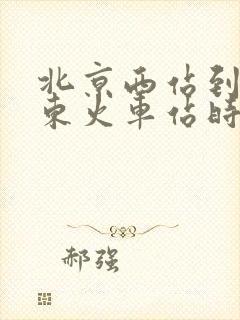 北京西站到
东火车站时
郝强